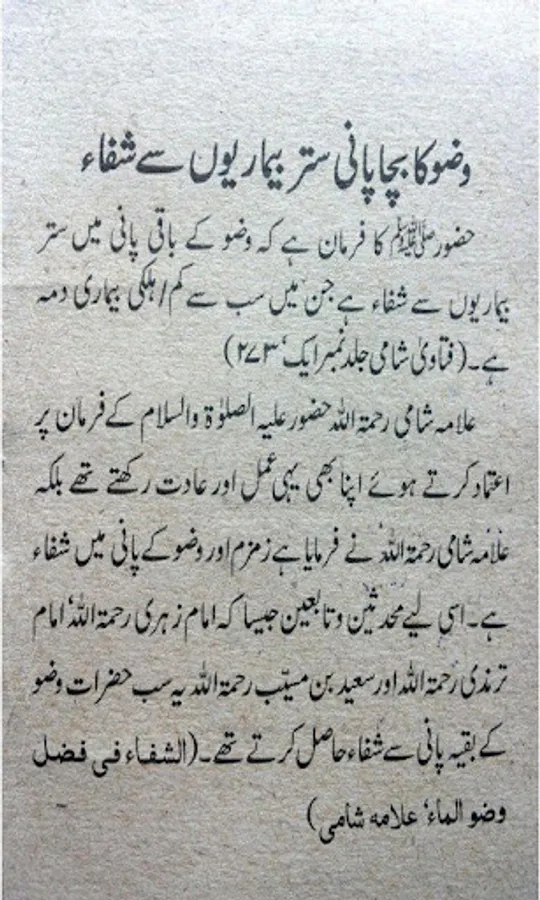 وضو کا بچا پانی ستر بیماریوں سے شفاء
حضور ﷺ کا فرمان ہے کہ وضو کے باقی پانی میں ستر
بیماریوں سے شفاء ہے جن میں سب سے کم/ہلکی بیماری دمہ
ہے۔ (فتاویٰ شامی جلد نمبر ایک‘ ۲۷۳)
علامہ شامی رحمۃ اللہ حضور علیہ الصلوٰۃ والسلام کے فرمان پر
اعتماد کرتے ہوئے اپنا بھی یہی عمل اور عادت رکھتے تھے بلکہ
علامہ شامی رحمۃ اللہ نے فرمایا ہے زمزم اور وضو کے پانی میں شفاء
ہے۔ اسی لیے محدثین و تابعین جیسا کہ امام زہری رحمۃ اللہ‘ امام
ترمذی رحمۃ اللہ اور سعید بن مسیّب رحمۃ اللہ یہ سب حضرات وضو
کے بقیہ پانی سے شفاء حاصل کرتے تھے۔ (الشفاء فی فضل
وضو الماء‘ علامہ شامی)